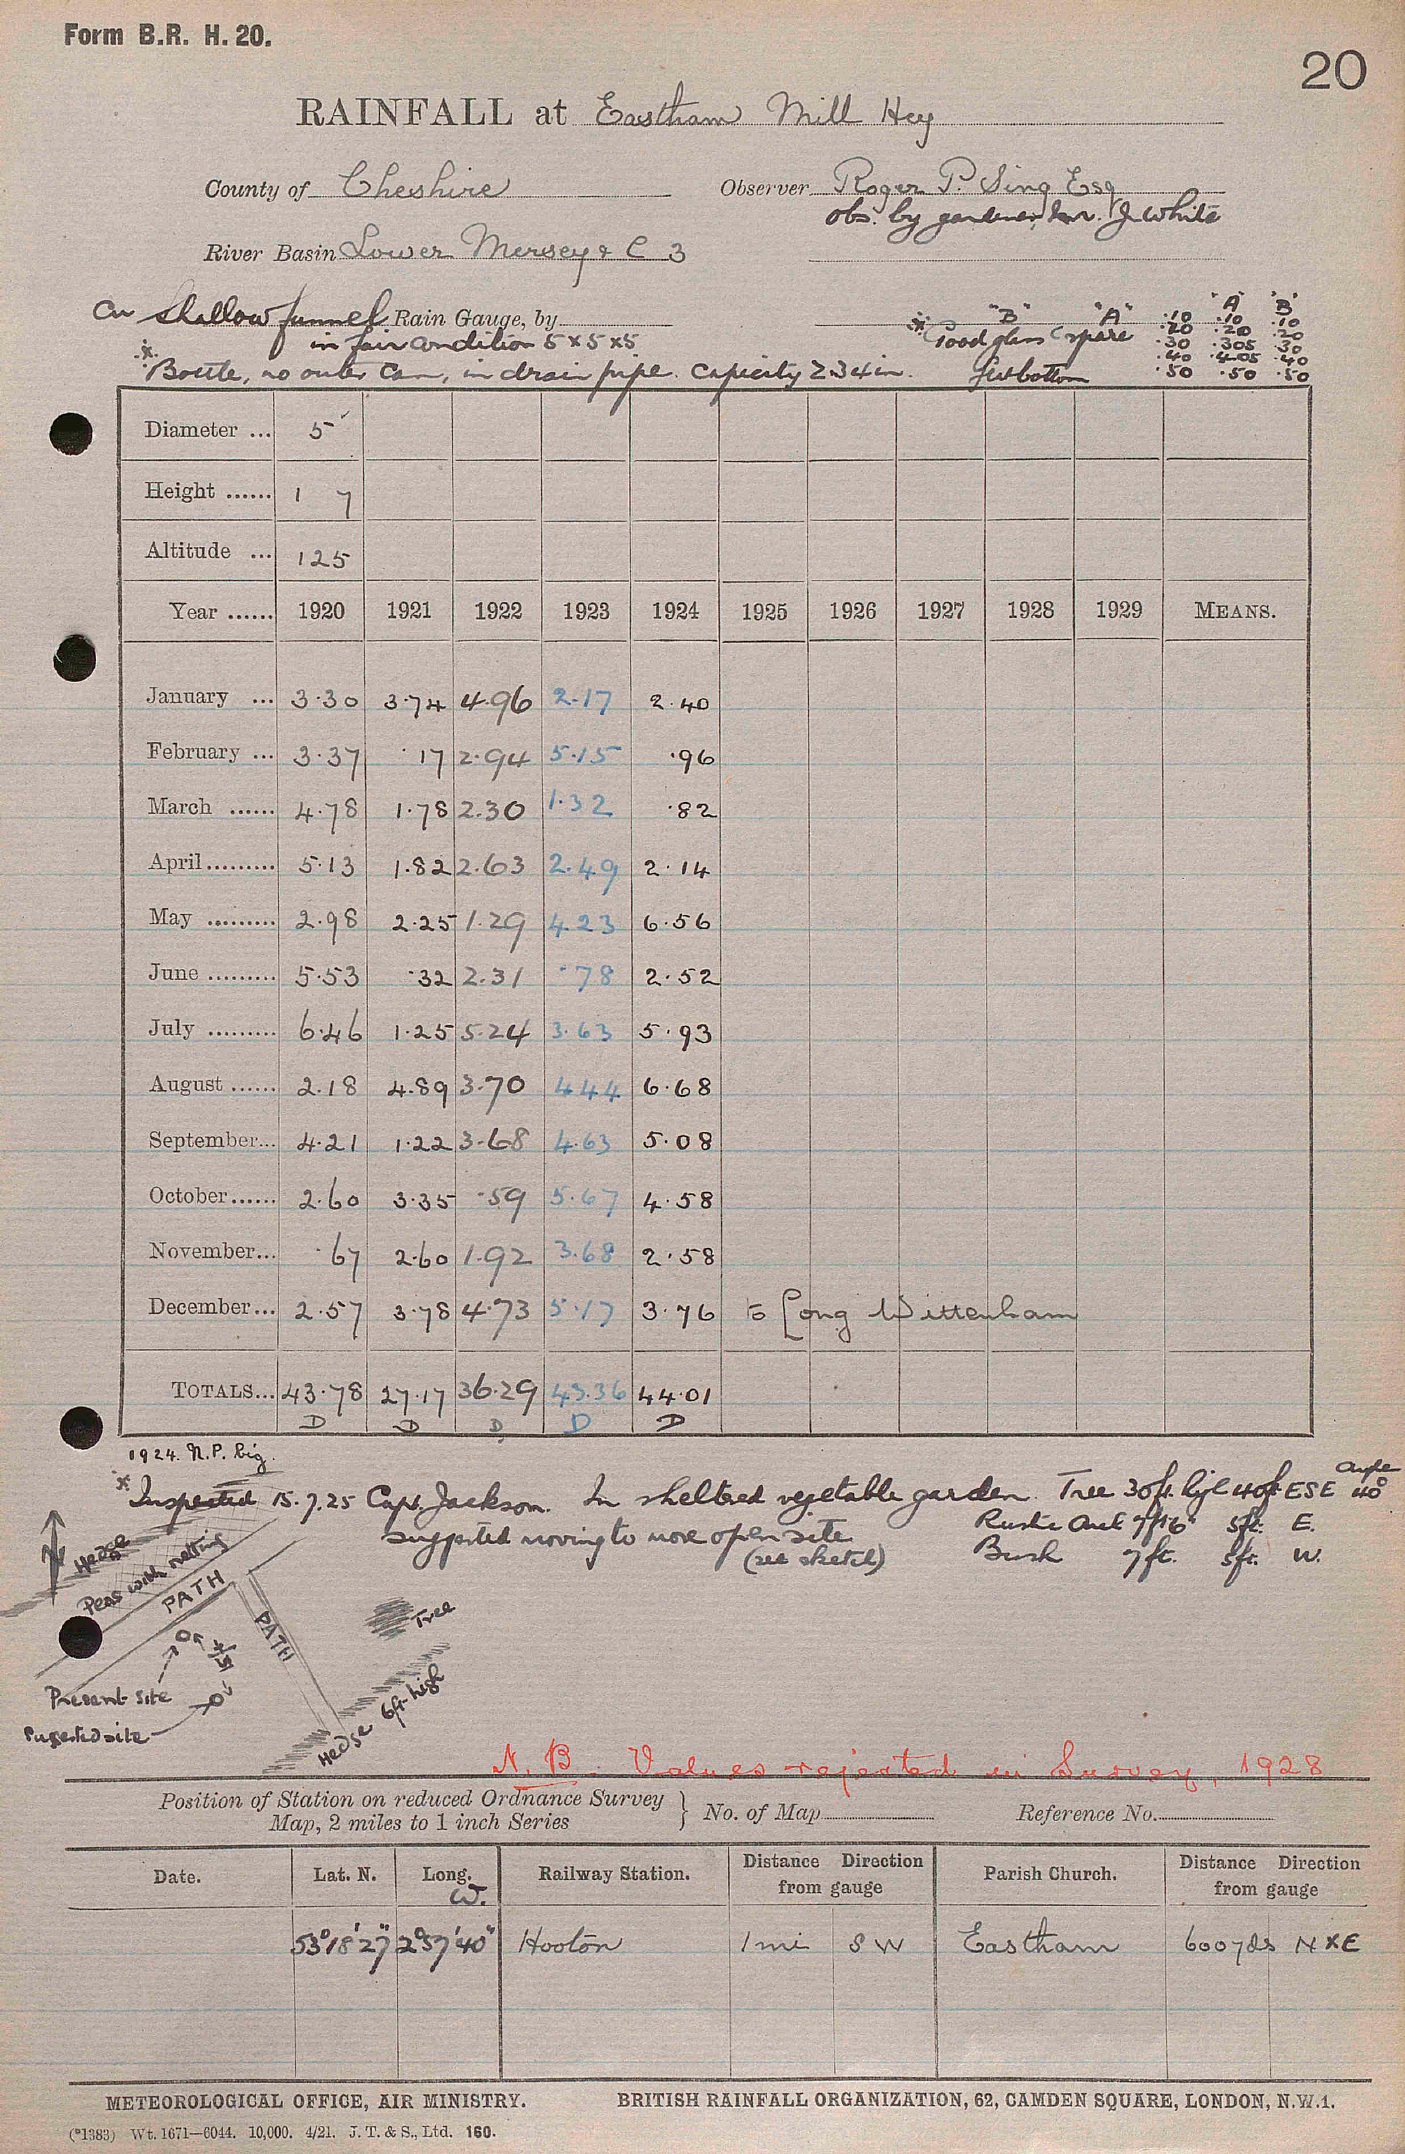 Form B.R. H. 20.
20
RAINFALL at Eastham Mill Hey
County of Cheshire Observer Roger P. Sing Esq
obs. by gardener, Mr. J. White
River Basin Lower Mersey & C 3
Cu Shallow funnel Rain Gauge, by
"B" "A" "A" "B"
in fair condition 5 x 5 x 5
* Good glass (spare
.10 .10 .10
.20 .20 .20
.30 .305 .30
.40 .405 .40
.50 .50 .50
* Bottle, no outer can, in drain pipe. Capacity 2.34 in. flat bottom
Diameter ... 5
Height ...... 1 7
Altitude ... 125
Year ...... 1920 1921 1922 1923 1924 1925 1926 1927 1928 1929 MEANS.
January ... 3.30 3.74 4.96 2.17 2.40
February ... 3.37 .17 2.94 5.15 .96
March ...... 4.78 1.78 2.30 1.32 .82
April ......... 5.13 1.82 2.63 2.49 2.14
May ......... 2.98 2.25 1.29 4.23 6.56
June ......... 5.53 .32 2.31 .78 2.52
July ......... 6.46 1.25 5.24 3.63 5.93
August ...... 2.18 4.89 3.70 4.44 6.68
September... 4.21 1.22 3.68 4.63 5.08
October...... 2.60 3.35 .59 5.67 4.58
November... .67 2.60 1.92 3.68 2.58
December... 2.57 3.78 4.73 5.17 3.76 to Long Wittenham
TOTALS... 43.78 27.17 36.29 43.36 44.01
D D D D D
1924. N.P. big.
* Inspected 15.7.25 Capt. Jackson. In sheltered vegetable garden. Tree 30ft. high 40ft ESE angle 40°
suggested moving to more open site Rustic Arch 7ft 6" 5ft. E.
(see sketch) Bush 7 ft. 5ft. W.
Hedge
Peas with netting
PATH
PATH
Tree
Present site
Suggested site
Hedge 6ft. high
N.B. Values rejected in Survey, 1928
Position of Station on reduced Ordnance Survey
Map, 2 miles to 1 inch Series } No. of Map Reference No.
Date. Lat. N. Long. W. Railway Station. Distance Direction from gauge Parish Church. Distance Direction from gauge
53°18'27" 2°57'40" Hooton 1 mi SW Eastham 600 yds N x E
METEOROLOGICAL OFFICE, AIR MINISTRY. BRITISH RAINFALL ORGANIZATION, 62, CAMDEN SQUARE, LONDON, N.W.1.
(*1383) Wt. 1671—6044. 10,000. 4/21. J. T. & S., Ltd. 160.